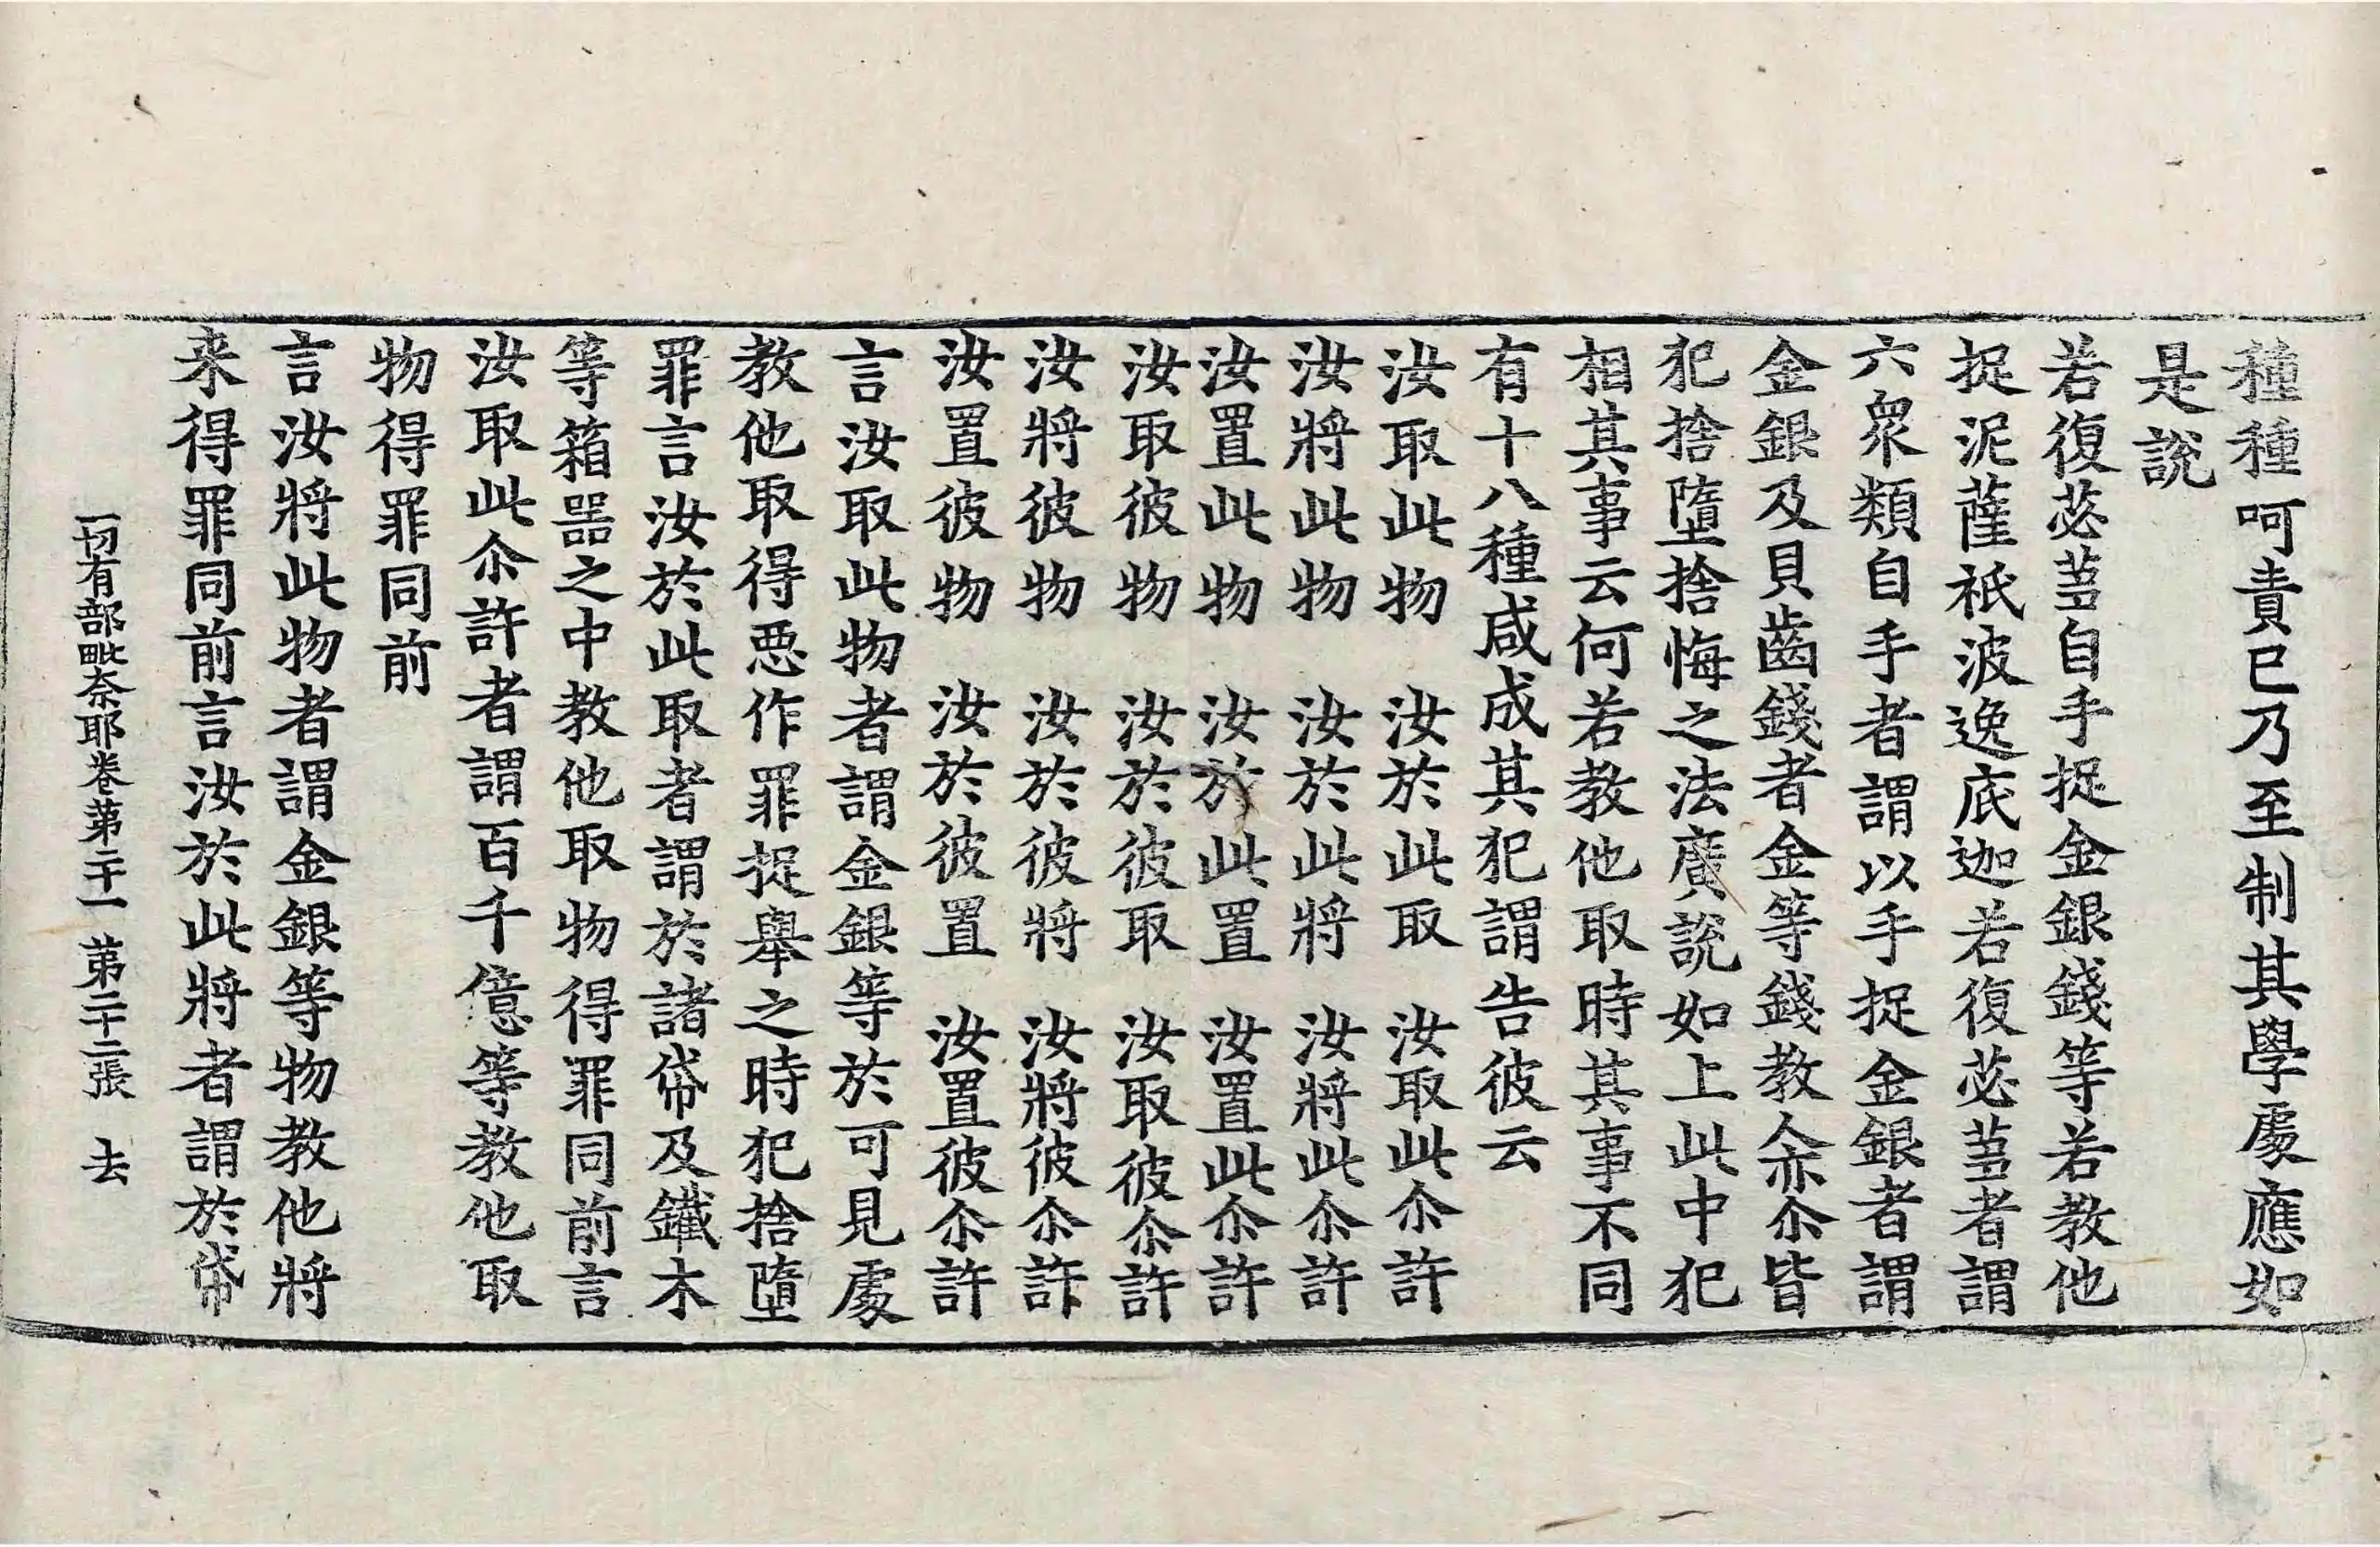 種種呵責已乃至制其學處應如
是說
若復苾芻自手捉金銀錢等若教他
捉泥薩祇波逸底迦若復苾芻者謂
六衆類自手者謂以手捉金銀者謂
金銀及貝齒錢者金等錢教他亦尒皆
犯捨墮捨悔之法廣說如上此中犯
相其事云何若教他取時其事不同
有十八種咸成其犯謂告彼云
汝取此物　汝於此取　汝取此尒許
汝將此物　汝於此將　汝將此尒許
汝置此物　汝於此置　汝置此尒許
汝取彼物　汝於彼取　汝取彼尒許
汝將彼物　汝於彼將　汝將彼尒許
汝置彼物　汝於彼置　汝置彼尒許
言汝取此物者謂金銀等於可見處
教他取得惡作罪捉舉之時犯捨墮
罪言汝於此取者謂於諸帒及鐵木
等箱器之中教他取物得罪同前言
汝取此尒許者謂百千億等教他取
物得罪同前
言汝將此物者謂金銀等物教他將
来得罪同前言汝於此將者謂於帒
一切有部毗奈耶卷第二十一　第二十二張　去